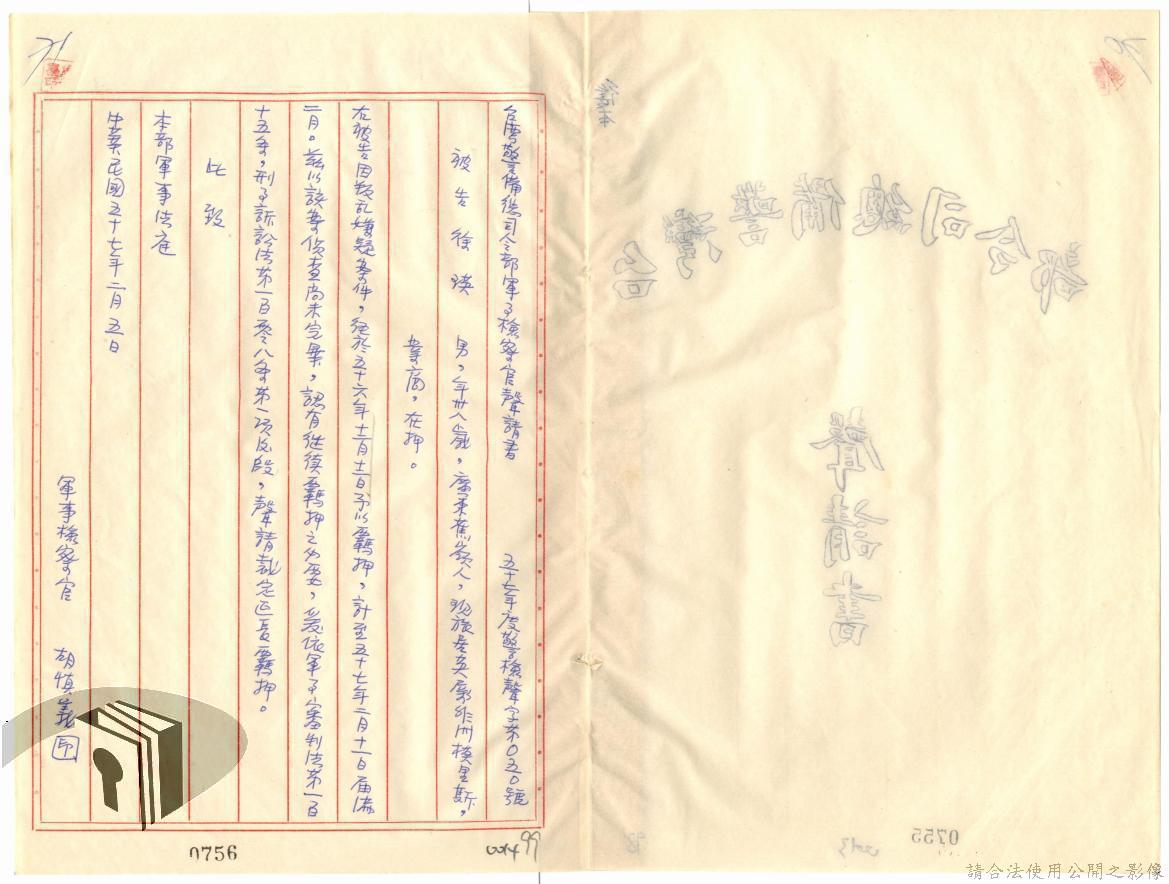 台灣警備總司令部
聲請書
0755
台灣警備總司令部軍事檢察官聲請書 五十七年度警檢聲字第0五0號
被告 徐瑛 男,年卅八歲,廣東蕉嶺人,現旅居英屬非洲模里斯,
業商,在押。
右被告因叛乱嫌疑案件,經於五十六年十二月十二日予以羈押,計至五十七年二月十一日届滿
二月。茲以該案偵查尚未完畢,認有继續羈押之必要,爰依軍事審判法第一百
十五条,刑事訴訟法第一百零八条第一項后段,聲請裁定延長羈押。
此致
本部軍事法庭
中華民國五十七年二月五日
軍事檢察官 胡慎義 印
0756
0014 99
請合法使用公開之影像